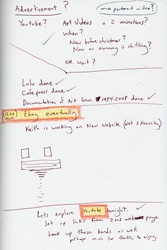 Advertisement?
mini portrait video?
Youtube? Art Videos + 2 animations?
When?
Now before christmas?
Now as economy is shifting?
OR Wait?
Lulu done ✓
Cafepress done ✓
Documentation of Art from 1984-2008 done ✓
Ebay eventually
Keith is working on New Website.
Lets explore Youtube tonight.
set up DKF from 2008 page
Look up those bands as well
perhaps music for Keith to enjoy